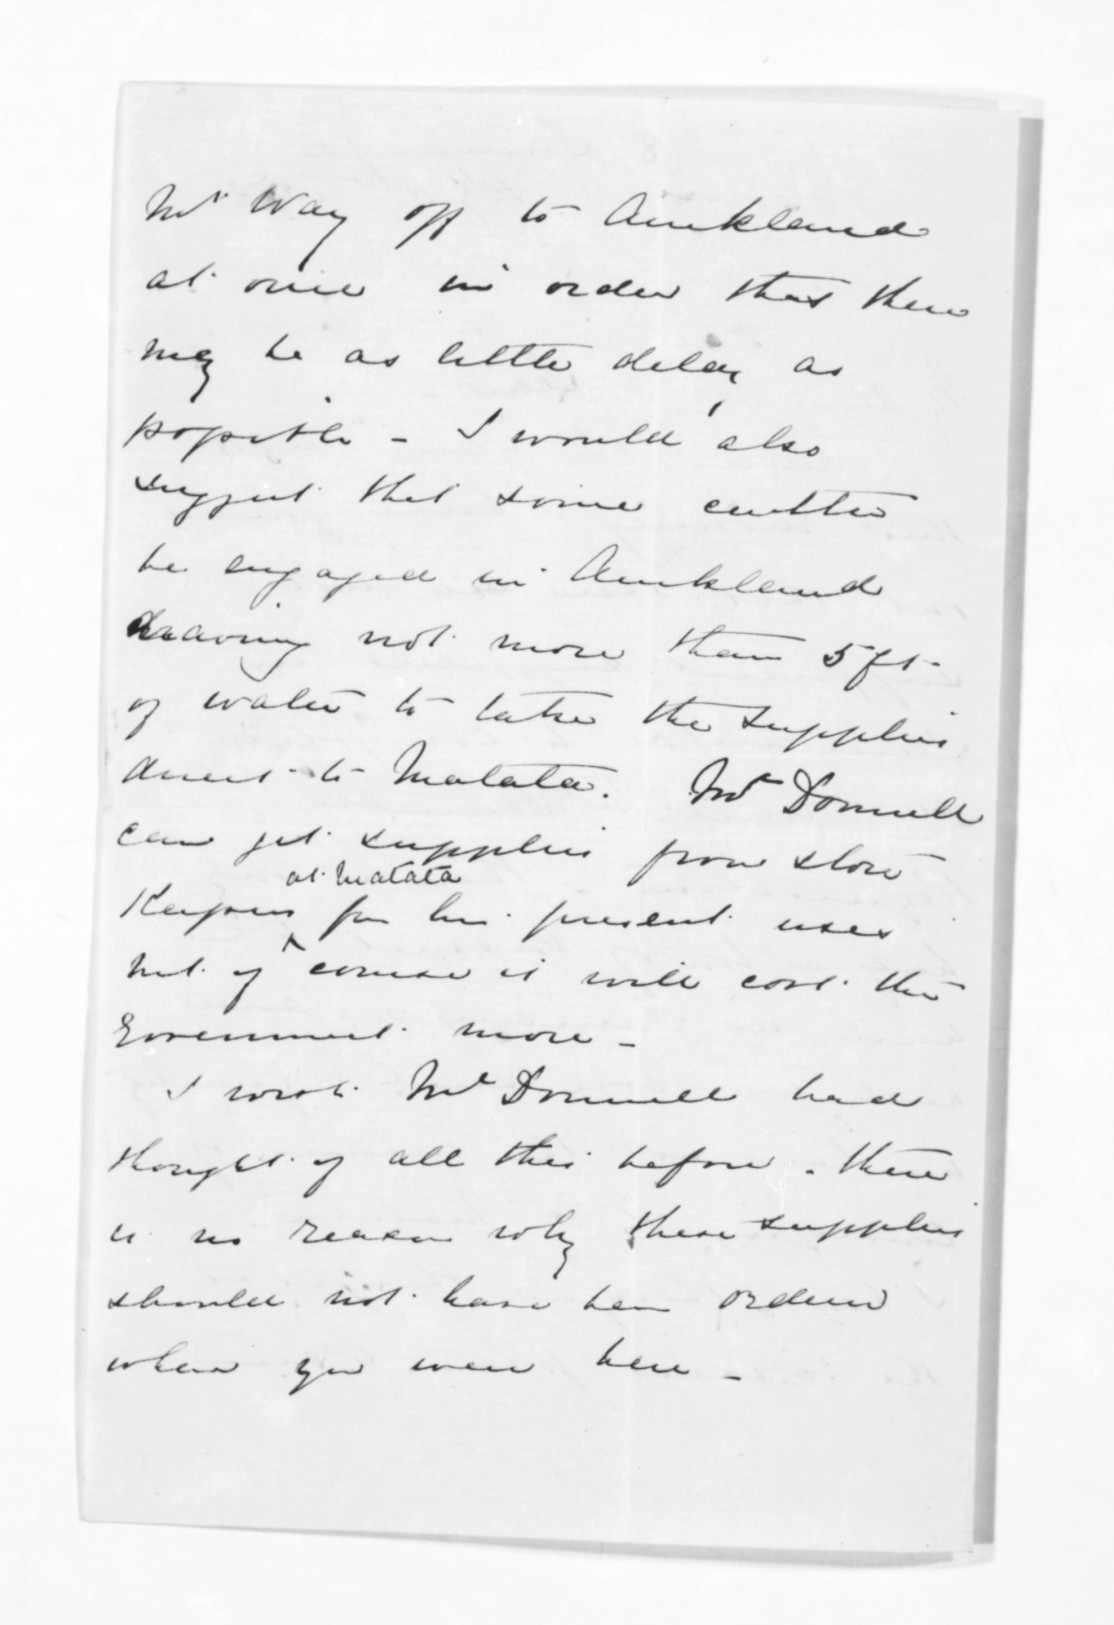 Mr Way off to Auckland
at once in order that there
may be as little delay as
possible - I would also
suggest that some cutter
be engaged in Auckland
drawing not more than 5 ft
of water to take the supplies
direct to Matata. McDonnell
can get supplies from store
Keepers at Matata for his present uses
but of course it will cost the
Government more -
I wish McDonnell had
thought of all this before. there
is no reason why these supplies
should not have been ordered
when you were here -